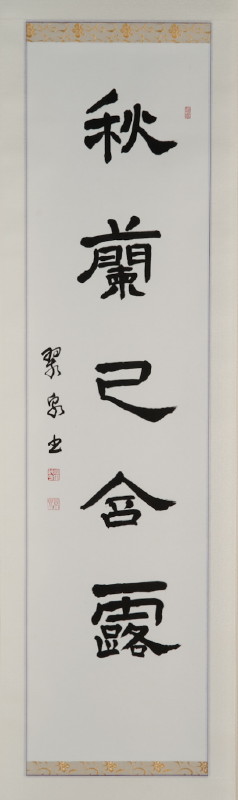 秋蘭已含露
翠泉书